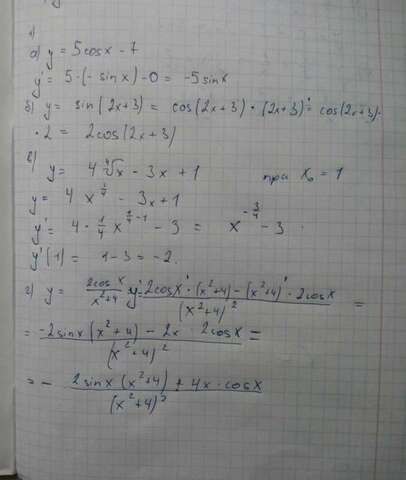 1)
а) y = 5cosx - 7
y' = 5·(-sinx) - 0 = -5sinx
б) y = sin(2x+3) = cos(2x+3)·(2x+3)' = cos(2x+3)·
·2 = 2cos(2x+3)
в) y = 4∜x - 3x + 1 при x₀ = 1
y = 4x^(1/4) - 3x + 1
y' = 4·1/4 x^(1/4 - 1) - 3 = x^(-3/4) - 3.
y'(1) = 1 - 3 = -2.
г) y = 2cosx/(x²+4) y' = (2cosx'·(x²+4) - (x²+4)'·2cosx)/(x²+4)² =
= (-2sinx(x²+4) - 2x·2cosx)/(x²+4)² =
= - (2sinx(x²+4) + 4x·cosx)/(x²+4)²